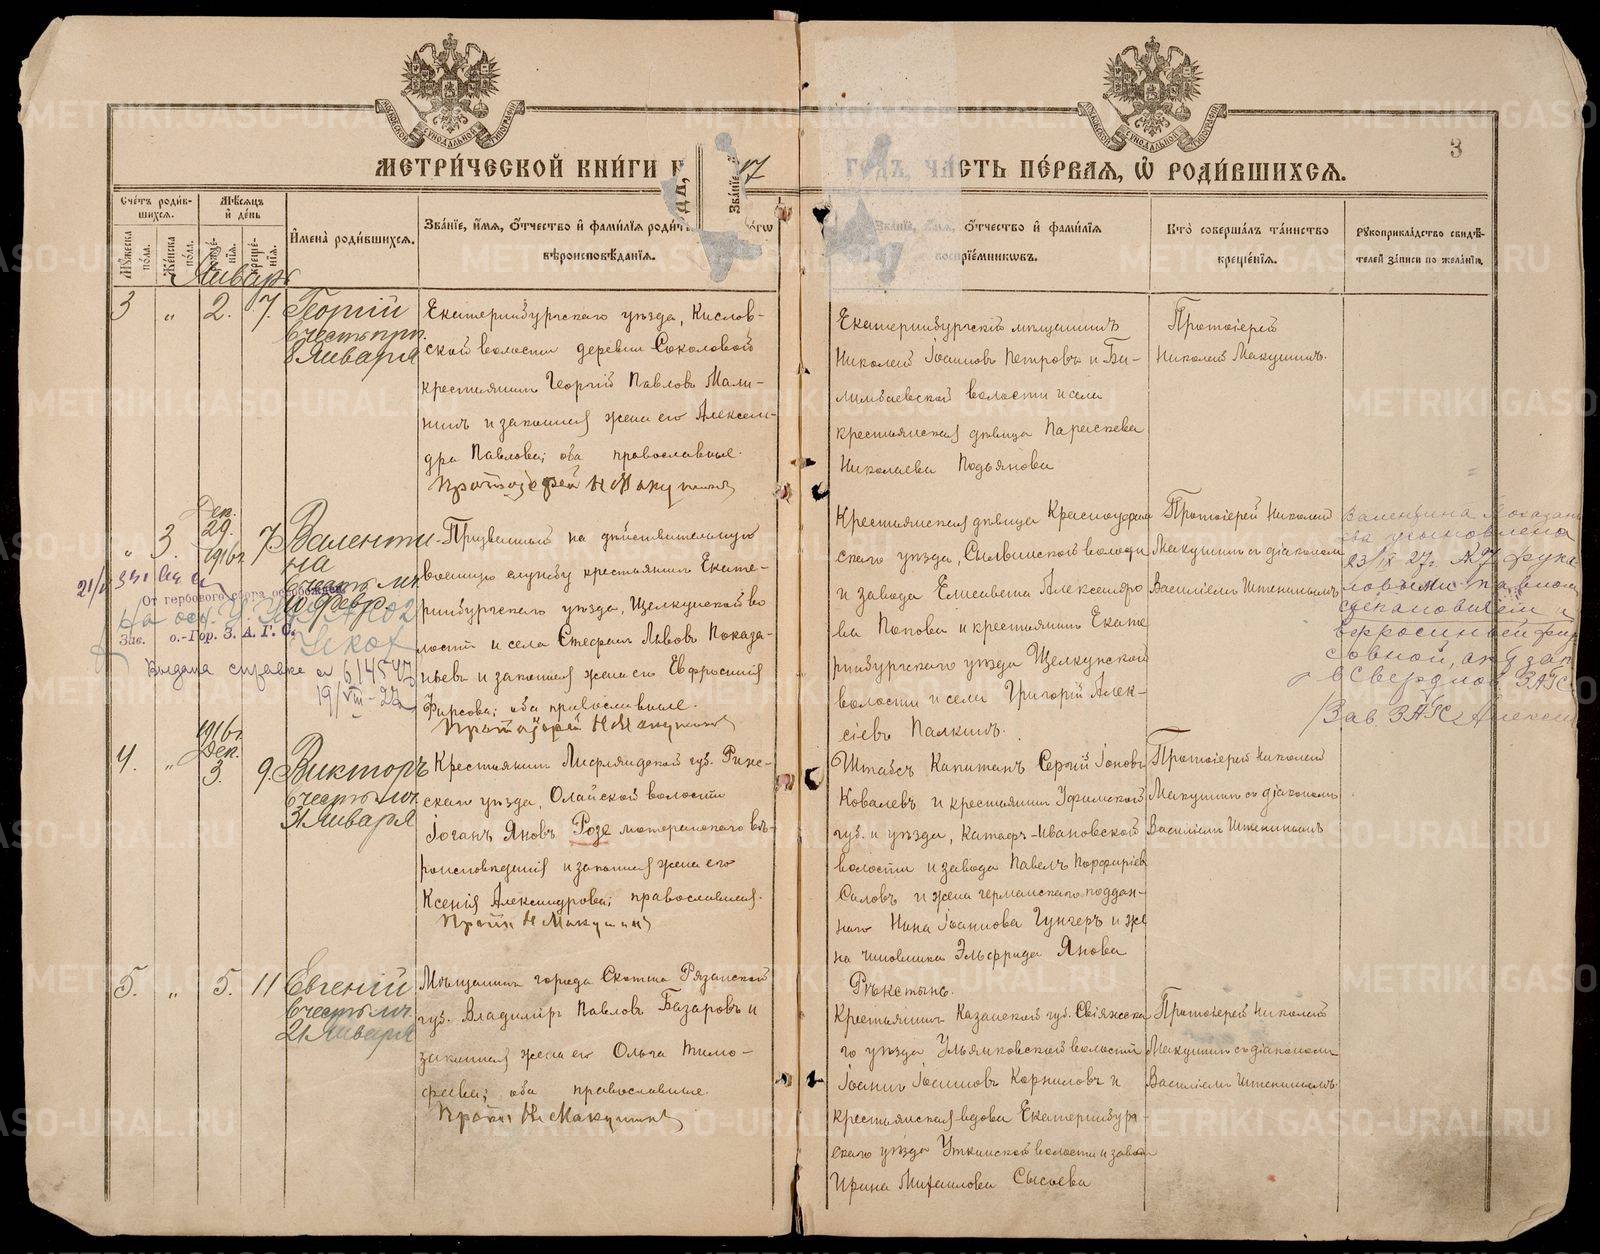 МЕТРИ́ЧЕСКОЙ КНИ́ГИ Н
17
ГОДЪ, ЧА́СТЬ ПЕ́РВАЯ, Ѽ РОДИ́ВШИХСЯ.
3
Сче́тъ роди́в-
шихся.
Мѣ́сяцъ
и҆ де́нь
Мꙋ́жеска
по́ла.
Же́нска
по́ла.
креще́-
нїѧ.
И҆мена̀ роди́вшихся.
Зва́нїе, и҆́мѧ, ѻ҆́тчество и҆ фами́лїѧ
вѣроисповѣ́данїѧ.
ѻ҆́тчество и҆ фами́лїѧ
воспрїе́мникѡвъ.
Кто̀ соверша́лъ та́инство
креще́нїѧ.
Рꙋкоприкла́дство свидѣ́-
телей за́писи по жела́нїю.
Январь
3 " 2. 7. Георгій
въ честь прп.
8 Января
Екатеринбургскаго уѣзда, Кислов-
ской волости деревни Соколовой
крестьянинъ Георгій Павловъ Мали-
нинъ и законная жена его Алексан-
дра Павлова; оба православные.
Протоіерей Н Макушинъ
Екатеринбургскій мѣщанинъ
Николай Іоанновъ Петровъ и Би-
лимбаевской волости и села
крестьянская дѣвица Параскева
Николаева Подьянова
Протоіерей
Николай Макушинъ.
" 3. Дек.
29.
1916г. 7 Валенти-
на
въ честь мч.
10 Февр.
Призванный на дѣйствительную
военную службу крестьянинъ Екате-
ринбургскаго уѣзда, Щелкунской во
лости и села Стефанъ Львовъ Показа-
ньевъ и законная жена его Евфросинія
Фирсова; оба православные.
Протоіерей Н Макушинъ
Крестьянская дѣвица Красноуфим
скаго уѣзда, Сылвинской волости
и завода Елисавета Александро
ва Попова и крестьянинъ Екате
ринбургскаго уѣзда Щелкунской
волости и села Григорій Алек-
сіевъ Палкинъ.
Протоіерей Николай
Макушинъ съ діакономъ
Василіемъ Ипатьинымъ
От гербового сбора освобожден.
Зав. о.-Гор. З. А. Г. С.
Выдана справка № 614547
19/VIII-
Валентина
удочерена
23/IX 27г. №
Степановичем и
Ефросиньей Фир
совной,
в Свердлов. ЗАГС
Зав ЗАГС
4. " 1916г.
Дек.
3. 9. Викторъ
въ честь мч.
31 Января
Крестьянинъ Лифляндской губ. Риж-
скаго уѣзда, Олайской волости
Іоганъ Яновъ Розе лютеранскаго вѣ-
роисповѣданія и законная жена его
Ксенія Александрова; православная.
Прот. Н Макушинъ
Штабсъ Капитанъ Сергій Іоновъ
Ковалевъ и крестьянинъ Уфимской
губ. и уѣзда, Катавъ-Ивановской
волости и завода Павелъ Порфиріев
Саловъ и жена германскаго поддан-
наго Нина Іоаннова Гунгеръ и же
на чиновника Эльфрида Янова
Рѣкстынь.
Протоіерей Николай
Макушинъ съ діакономъ
Василіемъ Ипатьинымъ
5. " 5. 11 Евгеній
въ честь мч.
21 Января
Мѣщанинъ города Скопина Рязанской
губ. Владиміръ Павловъ Базаровъ и
законная жена его Ольга Тимо-
феева; оба православные.
Прот. Н Макушинъ
Крестьянинъ Казанской губ. Свіяжска
го уѣзда Ульянковской волости
Іоаннъ Іоанновъ Корниловъ и
крестьянская вдова Екатеринбург-
скаго уѣзда Уткинской волости и завода
Ирина Михаилова Сысоева
Протоіерей Николай
Макушинъ съ діакономъ
Василіемъ Ипатьинымъ.
METRIKI.GASO-URAL.RU